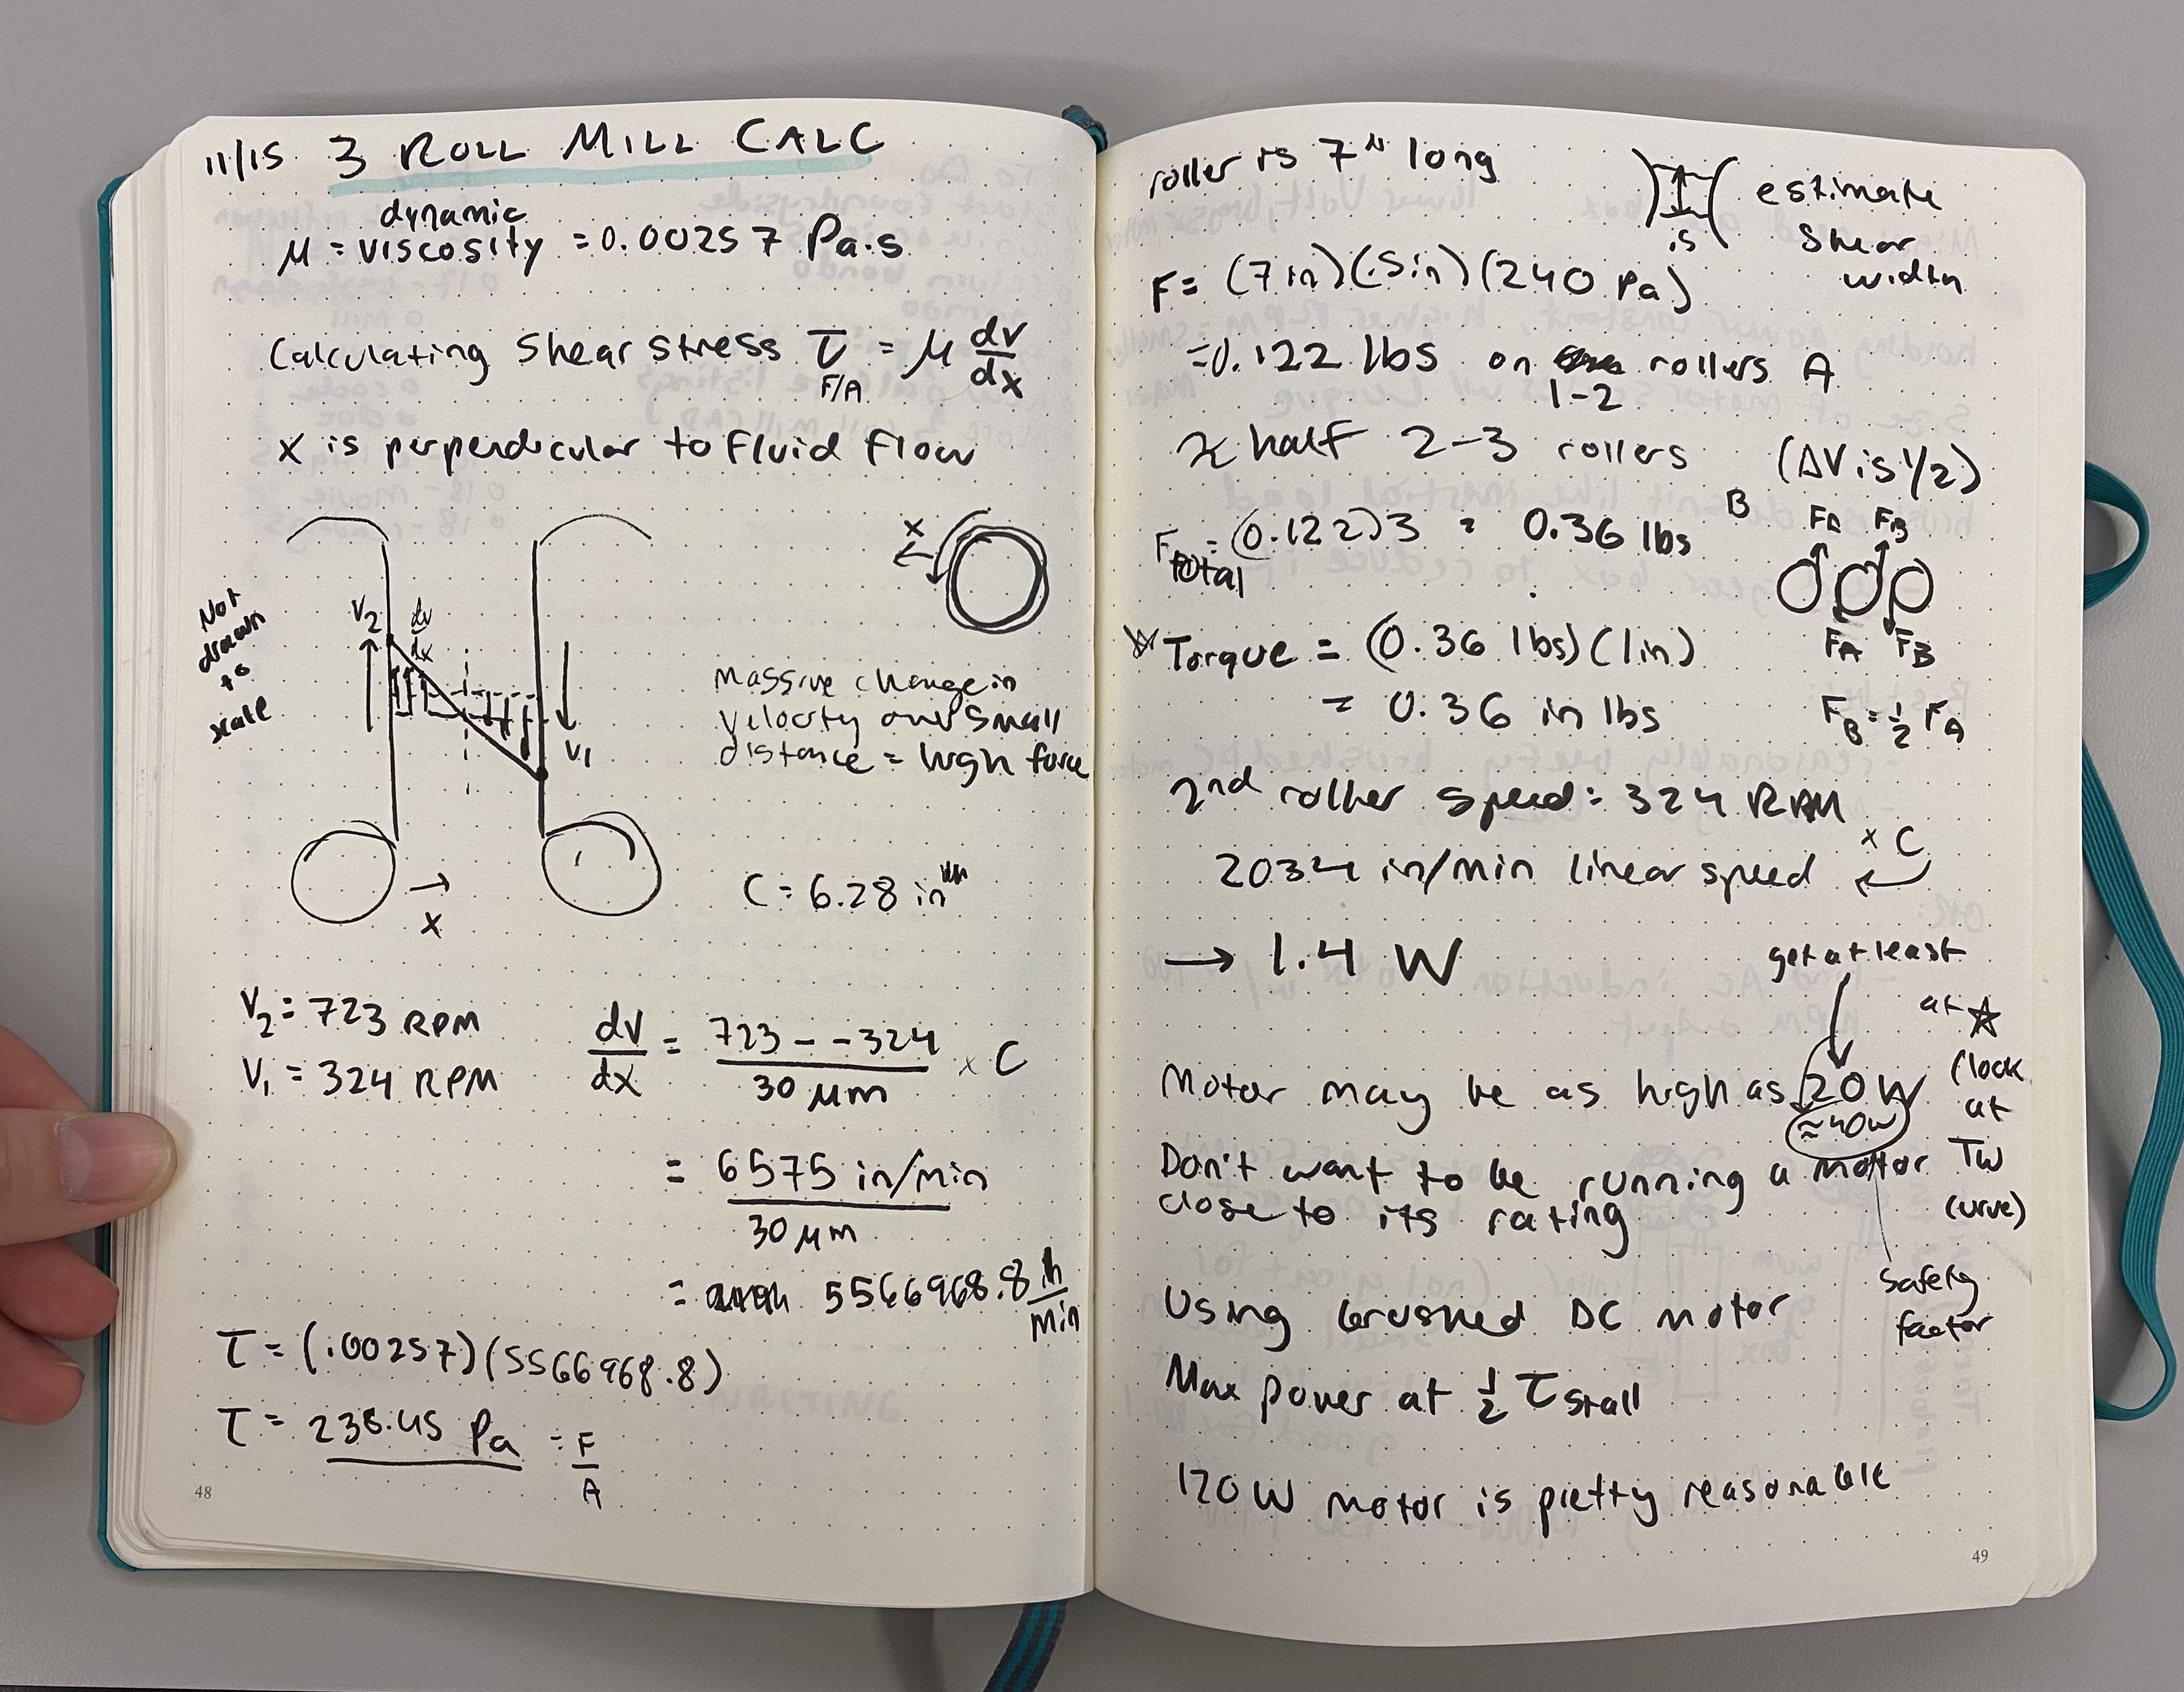 11/15 3 ROLL MILL CALC
dynamic
μ = viscosity = 0.00257 Pa·s
Calculating Shear stress τ = μ dv/dx
F/A
x is perpendicular to fluid flow
x
Not drawn to scale
V2
dv
dx
V1
Massive change in
velocity over small
distance = high force
x
C = 6.28 in
V2 = 723 RPM
V1 = 324 RPM
dv/dx = 723 - - 324 / 30 μm × C
= 6575 in/min / 30 μm
= 5566968.8 1/min
τ = (.00257)(5566968.8)
τ = 238.45 Pa = F/A
48
roller is 7" long
estimate
shear
width
.5
F = (7in)(.5in)(240 Pa)
= 0.122 lbs on rollers A
1-2
half 2-3 rollers (ΔV is 1/2)
B
Ftotal = (0.122)3 = 0.36 lbs
FA FB
FA FB
Torque = (0.36 lbs)(1in)
= 0.36 in lbs
FB = 1/2 FA
2nd roller speed: 324 RPM
× C
2034 in/min linear speed
→ 1.4 W
get at least
at ☆
(look
at
TW
curve)
Motor may be as high as 20W
≈40W
Don't want to be running a motor
close to its rating
safety
factor
Using brushed DC motor
Max power at 1/2 τstall
120W motor is pretty reasonable
49